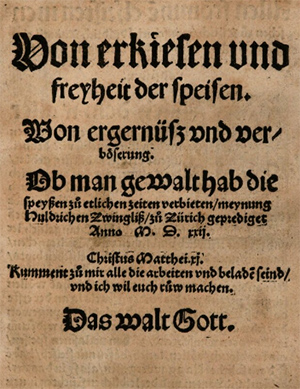 Von erkiesen vnd
freyheit der speisen.
Von ergernüsz vnd ver-
böserung.
Ob man gewalt hab die
speyßen zů etlichen zeiten verbieten/meynung
Huldrichen Zwingliß/zů Zürich geprediget
Anno M. D. xxij.
Christus Matthei.xj.
Kumment zů mir alle die arbeiten vnd beladē seind/
vnd ich wil euch růw machen.
Das walt Gott.